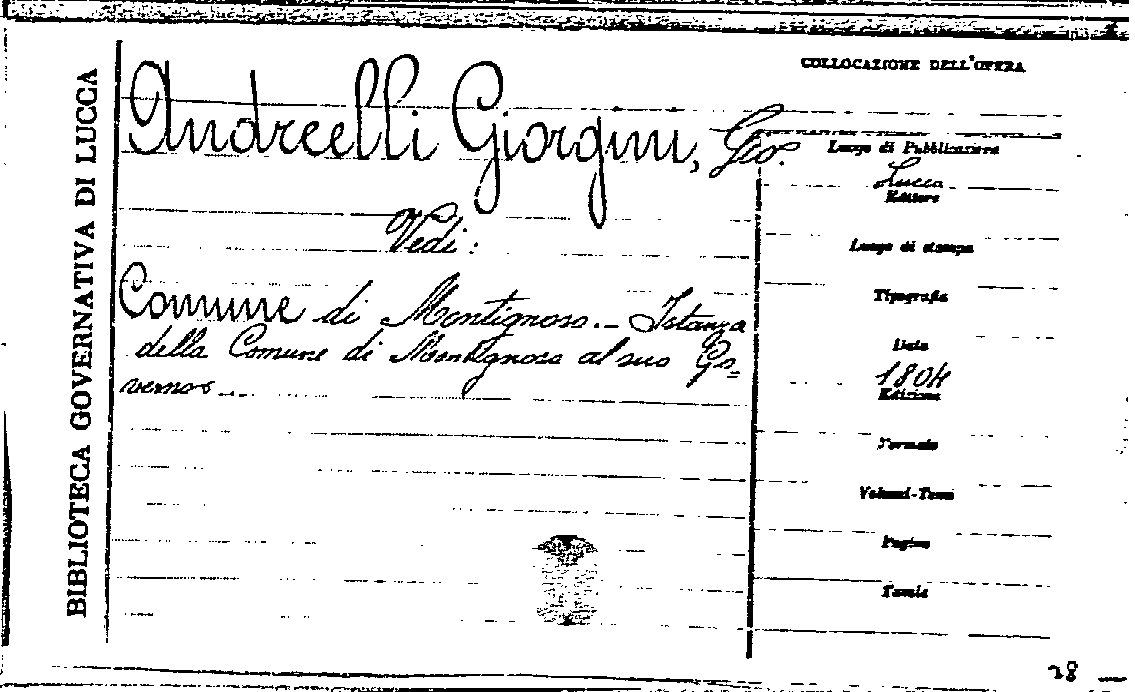 BIBLIOTECA GOVERNATIVA DI LUCCA
Andreelli Giorgini, Gio.
Vedi:
Comune di Montignoso. - Istanza
della Comune di Montignoso al suo Go=
verno
COLLOCAZIONE DELL'OPERA
Luogo di Pubblicazione
Lucca
Editore
Luogo di stampa
Tipografia
Data
1804
Edizione
Formato
Volumi-Tomi
Pagine
Tavole
28